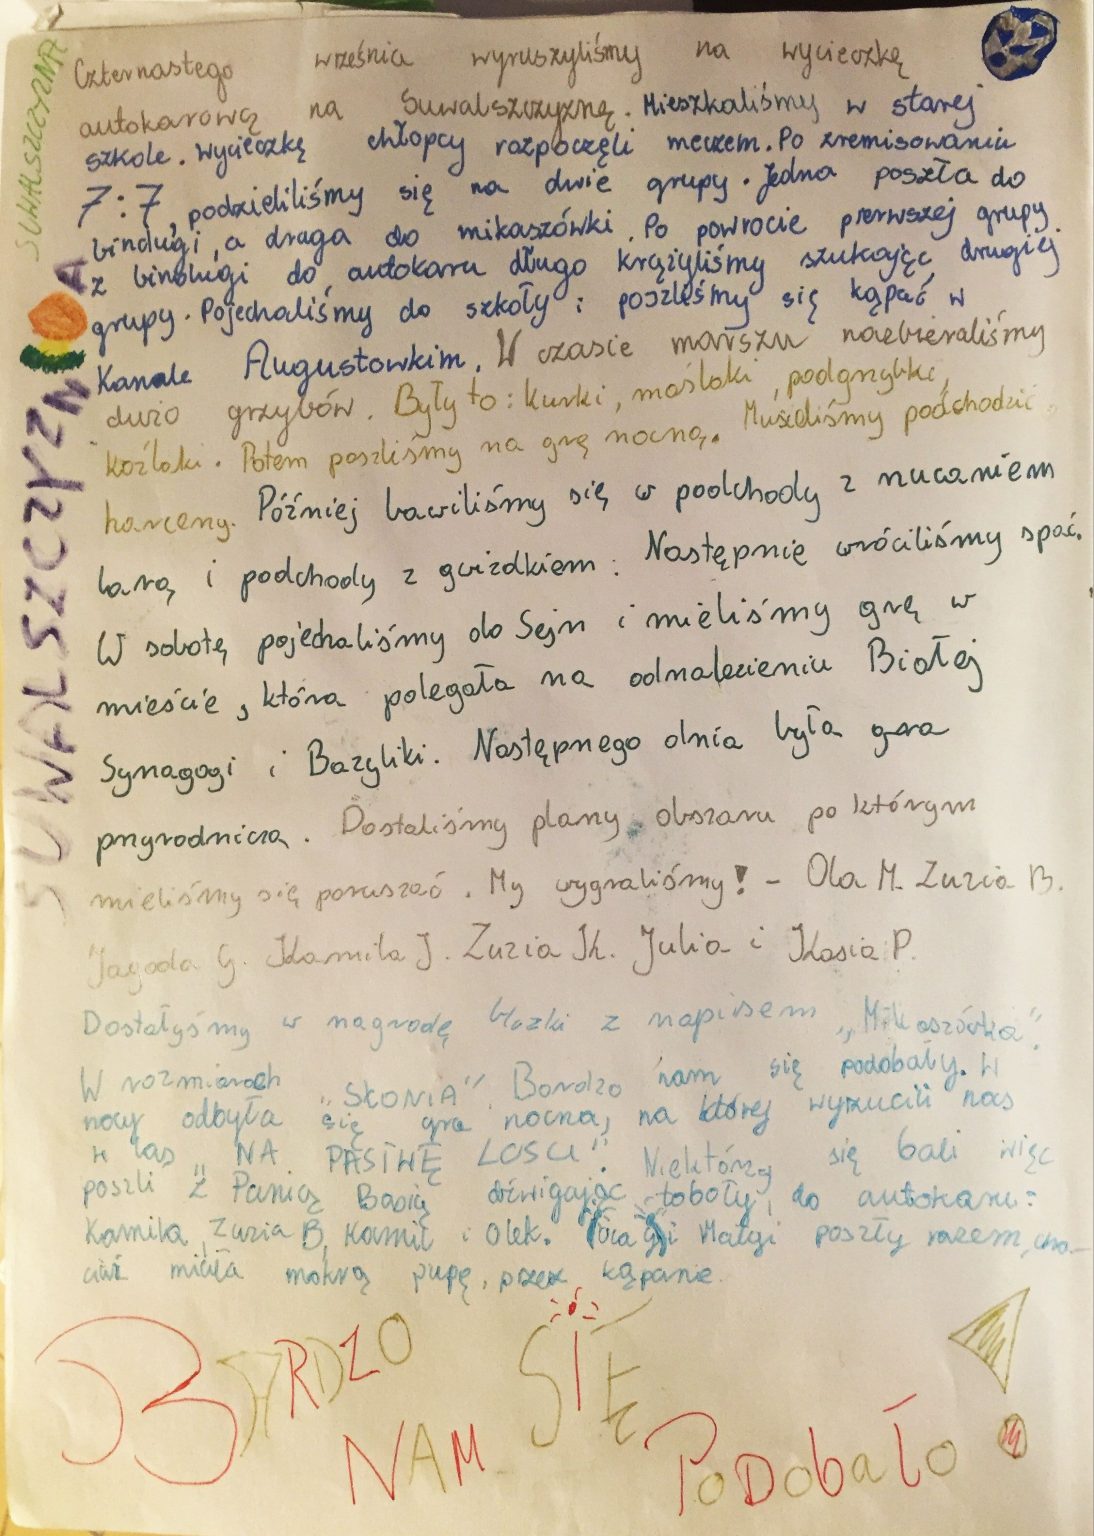 SUWALSZCZYZNA
SUWALSZCZYZNA
Czternastego września wyruszyliśmy na wycieczkę
autokarową na Suwalszczyznę. Mieszkaliśmy w starej
szkole. Wycieczkę chłopcy rozpoczęli meczem. Po zremisowaniu
7:7, podzieliliśmy się na dwie grupy. Jedna poszła do
bindugi, a druga do mikaszówki. Po powrocie pierwszej grupy
z bindugi do autokaru długo krążyliśmy szukając drugiej
grupy. Pojechaliśmy do szkoły i poszliśmy się kąpać w
Kanale Augustowkim. W czasie marszu nazbieraliśmy
dużo grzybów. Były to: kurki, maślaki, podgrzybki,
koźlaki. Potem poszliśmy na grę nocną. Musieliśmy podchodzić
harcerzy. Później bawiliśmy się w podchody z rzucaniem
larą i podchody z gwizdkiem. Następnie wróciliśmy spać.
W sobotę pojechaliśmy do Sejn i mieliśmy grę w
mieście, która polegała na odnalezieniu Białej
Synagogi i Bazyliki. Następnego dnia była gra
przyrodnicza. Dostaliśmy plany obszaru po którym
mieliśmy się poruszać. My wygraliśmy! - Ola M. Zuzia B.
Jagoda G. Kamila J. Zuzia K. Julia i Kasia P.
Dostałyśmy w nagrodę bluzki z napisem „Mikaszówka".
W rozmiarach „SŁONIA". Bardzo nam się podobały. W
nocy odbyła się gra nocna, na której wyrzucili nas
w las „NA PASTWĘ LOSU". Niektórzy się bali więc
poszli z Panią Basią dźwigając toboły, do autokaru:
Kamila, Zuzia B, Kamil i Olek. i Małgi poszły razem, cho-
ciaż miała mokrą pupę, przez kąpanie.
BARDZO SIĘ
NAM PODOBAŁO!